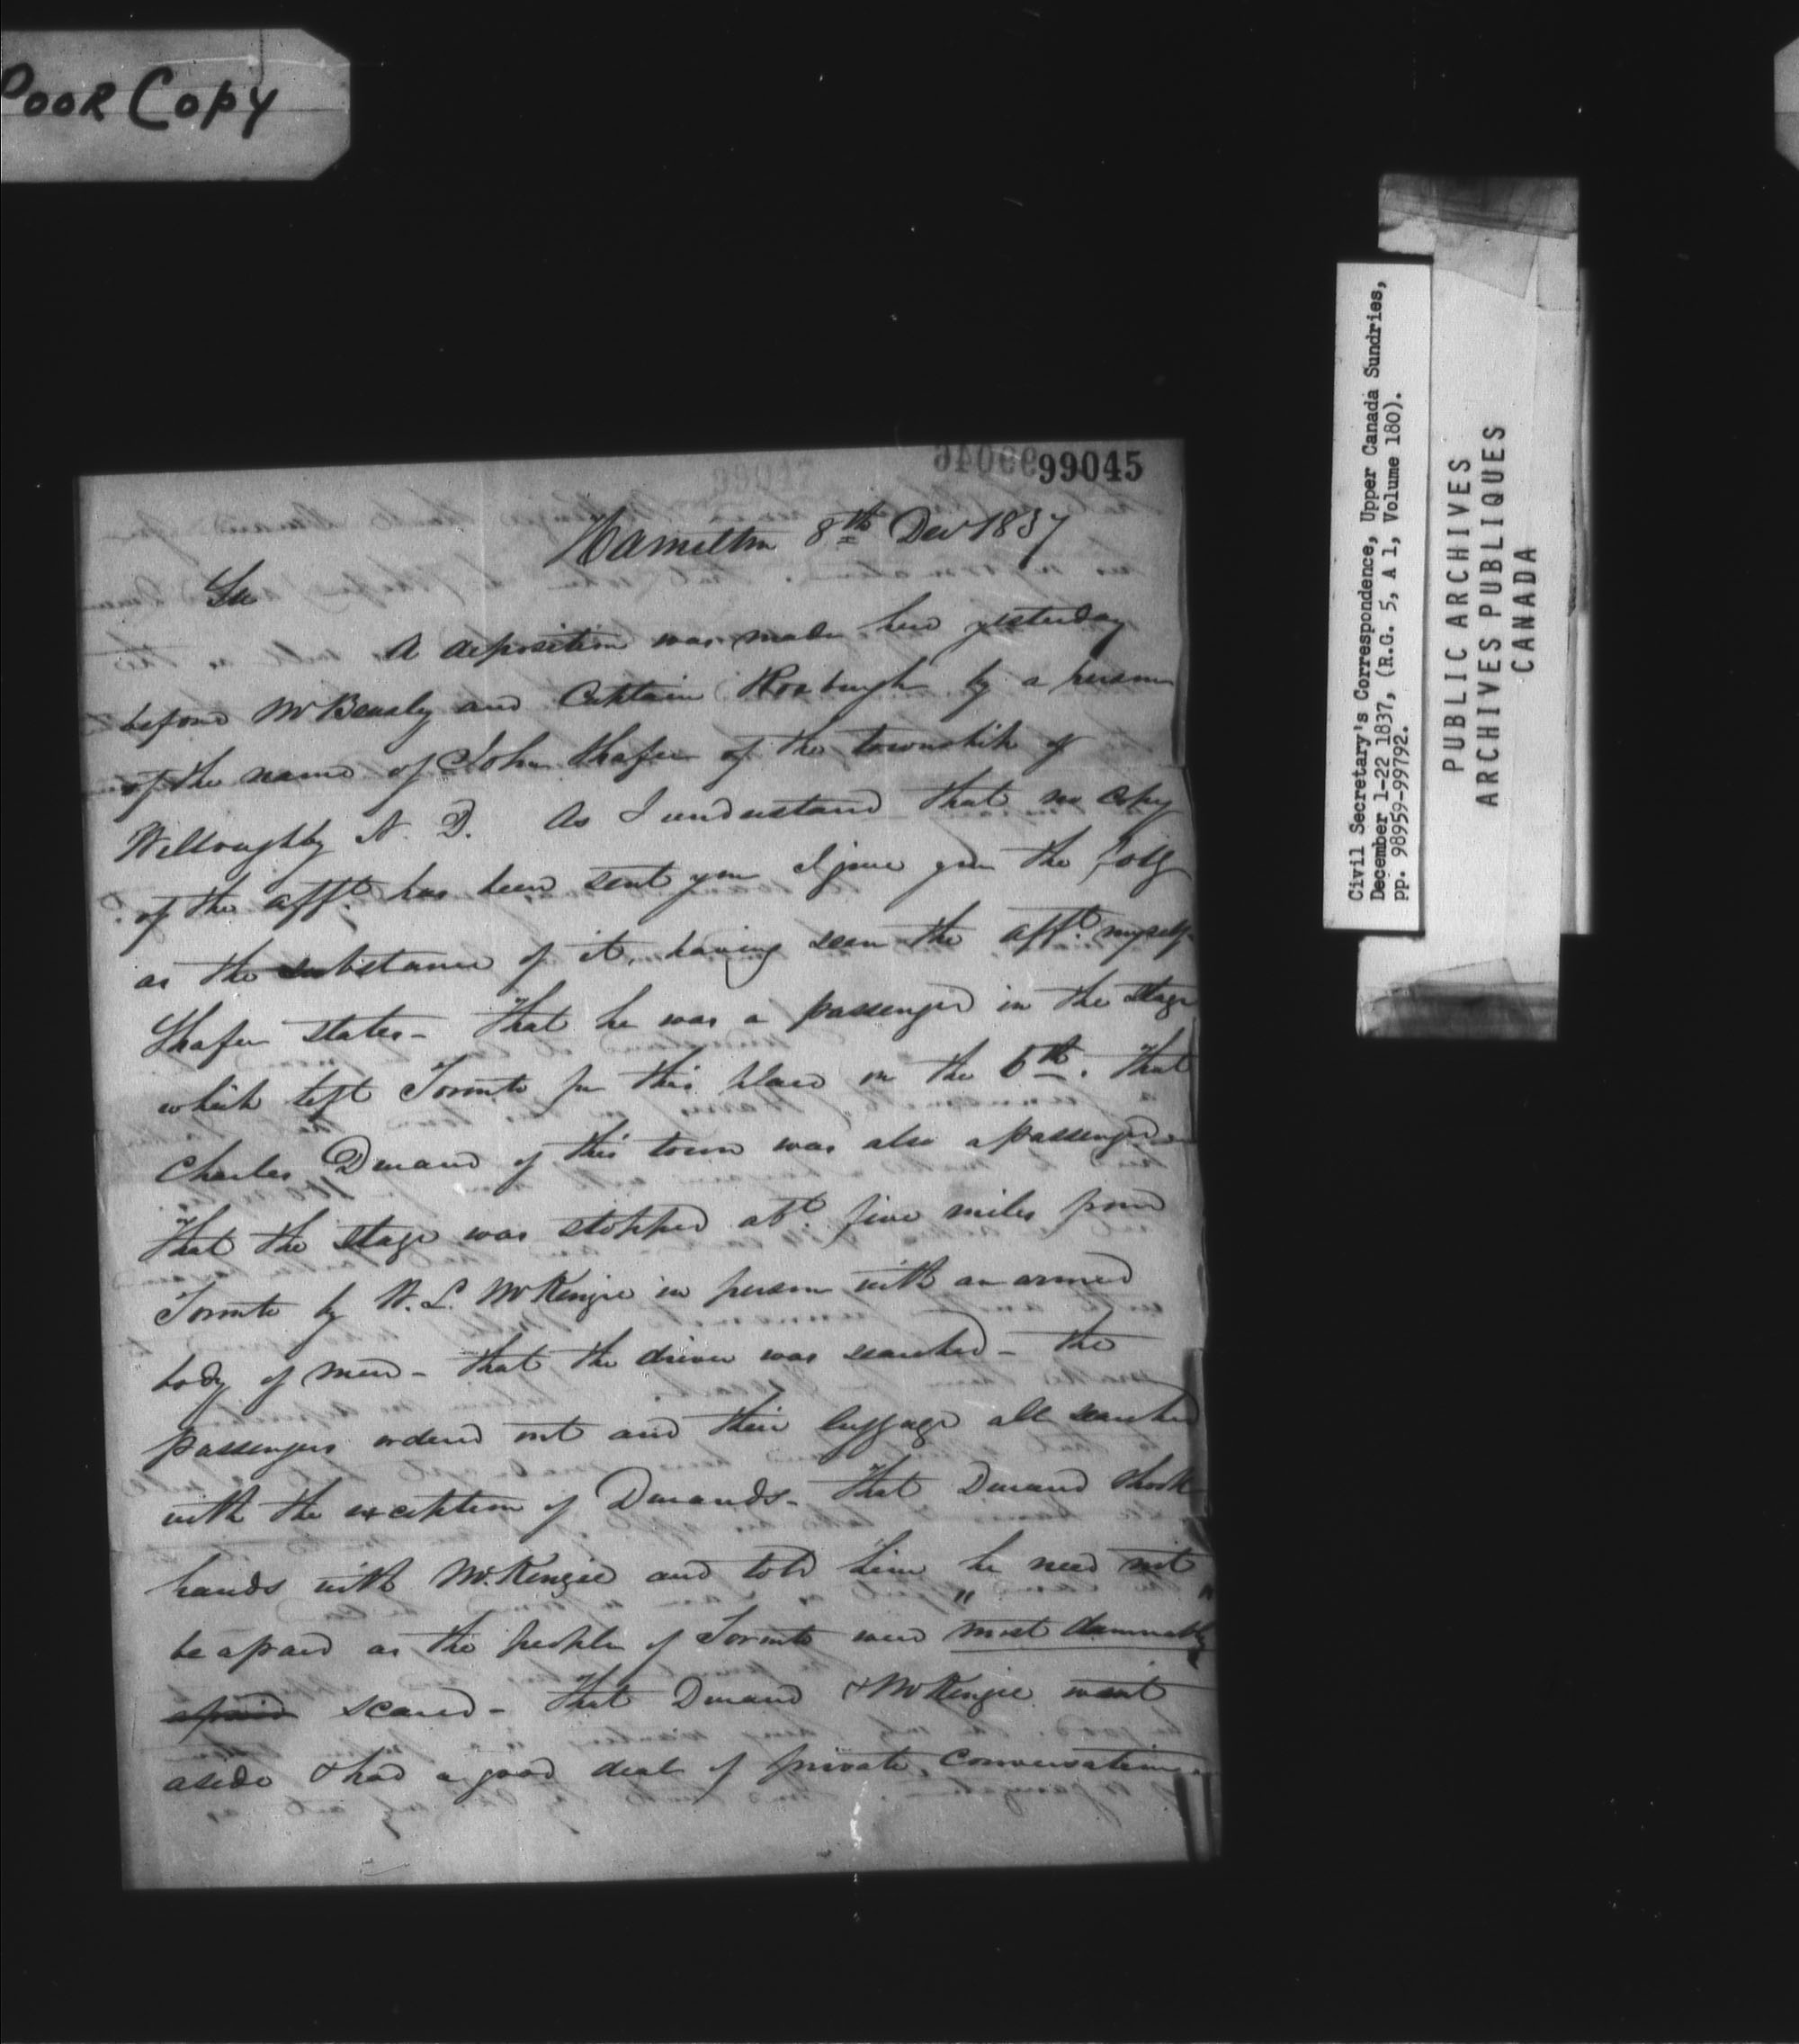 Poor Copy
99045
Hamilton 8th Decr 1837
Sir
A deposition was made here yesterday
before Mr Beasley and Captain Roxburgh by a person
of the name of John Shafer of the township of
Willoughby N. D. As I understand that no copy
of the afft. has been sent you I give you the follg
as the substance of it, having seen the afft. myself.
Shafer states - That he was a passenger in the stage
which left Toronto for this place on the 6th. That
Charles Durand of this town was also a passenger
That the stage was stopped abt. five miles from
Toronto by W. L. McKenzie in person with an armed
body of men - that the driver was searched - the
passengers ordered out and their luggage all searched
with the exception of Durands - That Durand shook
hands with McKenzie and told him he need not
be afraid as the people of Toronto were "most damnably"
afraid scared - That Durand & McKenzie went
aside & had a good deal of private conversation
Civil Secretary's Correspondence, Upper Canada Sundries,
December 1-22 1837, (R.G. 5, A 1, Volume 180).
pp. 98959-99792.
PUBLIC ARCHIVES
ARCHIVES PUBLIQUES
CANADA